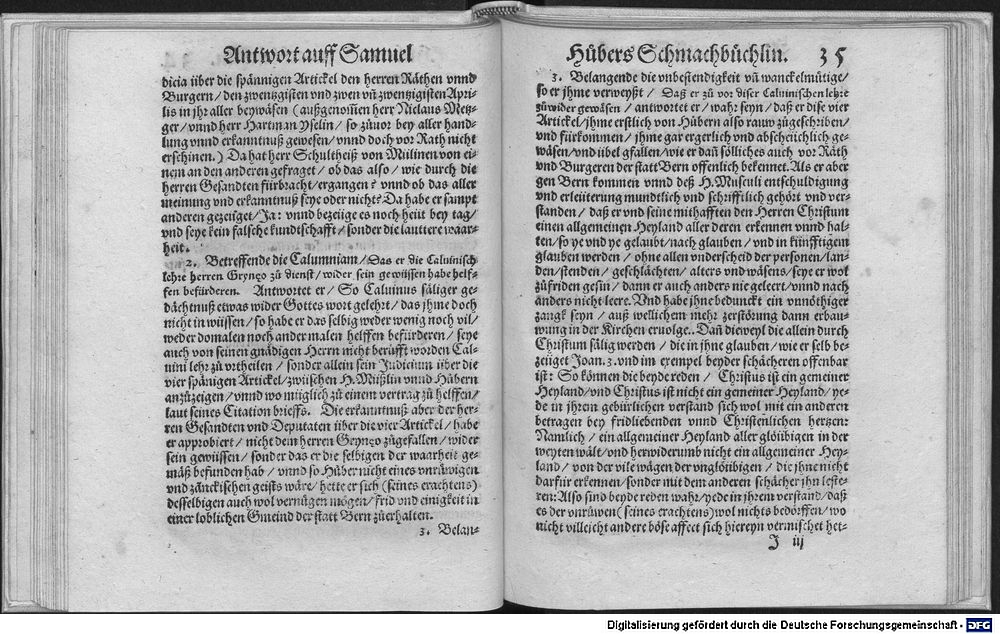 Antwort auff Samuel
dicia über die spännigen Artickel den herren Räthen vnnd
Burgern / den zwentzigsten vnd zwen vñ zwentzigsten Apri-
lis in jhr aller beywäsen (außgenom̃en herr Niclaus Metz-
ger / vnnd herr Hartman Yselin / so zůuor bey aller hand-
lung vnnd erkanntnuß gewesen / vnnd doch vor Rath nicht
erschinen.) Da hat herr Schultheiß von Mülinen von ei-
nem an den anderen gefraget / ob das also / wie durch die
herren Gesandten fürbracht / ergangen? vnnd ob das aller
meinung vnd erkanntnuß seye oder nicht? Da habe er sampt
anderen gezeiget / Ja: vnnd bezeüge es noch heüt bey tag /
vnd seye kein falsche kundtschafft / sonder die lauttere waar-
heit.
2. Betreffende die Calumniam / Das er die Caluinisch
lehre herren Gryneo zů dienst / wider sein gewüssen habe helf-
fen befürderen. Antwortet er / So Caluinus säliger ge-
dächtnuß etwas wider Gottes wort gelehrt / das jhme doch
nicht in wüssen / so habe er das selbig weder wenig noch vil /
weder domalen noch ander malen helffen befürderen / seye
auch von seinen gnädigen Herrn nicht berüfft worden Cal-
uini lehr zů vrtheilen / sonder allein sein Judicium über die
vier spänigen Artickel / zwüschen H. Müßlin vnnd Hübern
anzůzeigen / vnnd wo müglich zů einem vertrag zů helffen /
laut seines Citation brieffs. Die erkanntnuß aber der her-
ren Gesandten vnd Deputaten über die vier Artickel / habe
er approbiert / nicht dem herren Gryneo zůgefallen / wider
sein gewüssen / sonder das er die selbigen der waarheit ge-
mäß befunden hab / vnnd so Hüber nicht eines vnrüwigen
vnd zänckischen geists wäre / hette er sich (seines erachtens)
desselbigen auch wol vernügen mögen / frid vnd einigkeit in
einer loblichen Gmeind der statt Bern zůerhalten.
3. Belan-
Hübers Schmachbüchlin. 35
3. Belangende die vnbestendigkeit vñ wanckelmütige /
so er jhme verweyßt / Daß er zů vor diser Caluinischen lehre
zůwider gewäsen / antwortet er / wahr seyn / daß er dise vier
Artickel / jhme erstlich von Hübern also rauw zůgeschriben /
vnd fürkommen / jhme gar ergerlich vnd abscheüchlich ge-
wäsen / vnd übel gfallen / wie er dañ sölliches auch vor Räth
vnd Burgeren der statt Bern offenlich bekennet. Als er aber
gen Bern kommen vnnd deß H. Musculi entschuldigung
vnd erleüterung mundtlich vnd schrifftlich gehört vnd ver-
standen / daß er vnd seine mithafften den Herren Christum
einen allgemeinen Heyland aller deren erkennen vnnd hal-
ten / so ye vnd ye gelaubt / nach glauben / vnd in künfftigem
glauben werden / ohne allen vnderscheid der personen / lan-
den / stenden / geschlächten / alters vnd wäsens / seye er wol
zůfriden gesin / dann er auch anders nie geleert / vnnd nach
anders nicht leere. Vnd habe jhne bedunckt ein vnnöthiger
zangk seyn / auß wellichem mehr zerstörung dann erbau-
wung in der Kirchen eruolge.. Dañ dieweyl die allein durch
Christum sälig werden / die in jhne glauben / wie er selb be-
zeüget Joan. 3. vnd im exempel beyder schächeren offenbar
ist: So können die beyde reden / Christus ist ein gemeiner
Heyland / vnd Christus ist nicht ein gemeiner Heyland / ye-
de in jhrem gebürlichen verstand sich wol mit ein anderen
betragen bey fridliebenden vnnd Christenlichen hertzen:
Namlich / ein allgemeiner Heyland aller glöübigen in der
weyten wält / vnd herwiderumb nicht ein allgemeiner Hey-
land / von der vile wägen der vnglöübigen / die jhne nicht
darfür erkennen / sonder mit dem anderen schächer jhn leste-
ren: Also sind beyde reden wahr / yede in jhrem verstand / daß
es der vnrüwen (seines erachtens) wol nichts bedörffen / wo
nicht villeicht andere böse affect sich hiereyn vermischet het-
J iij
Digitalisierung gefördert durch die Deutsche Forschungsgemeinschaft - DFG